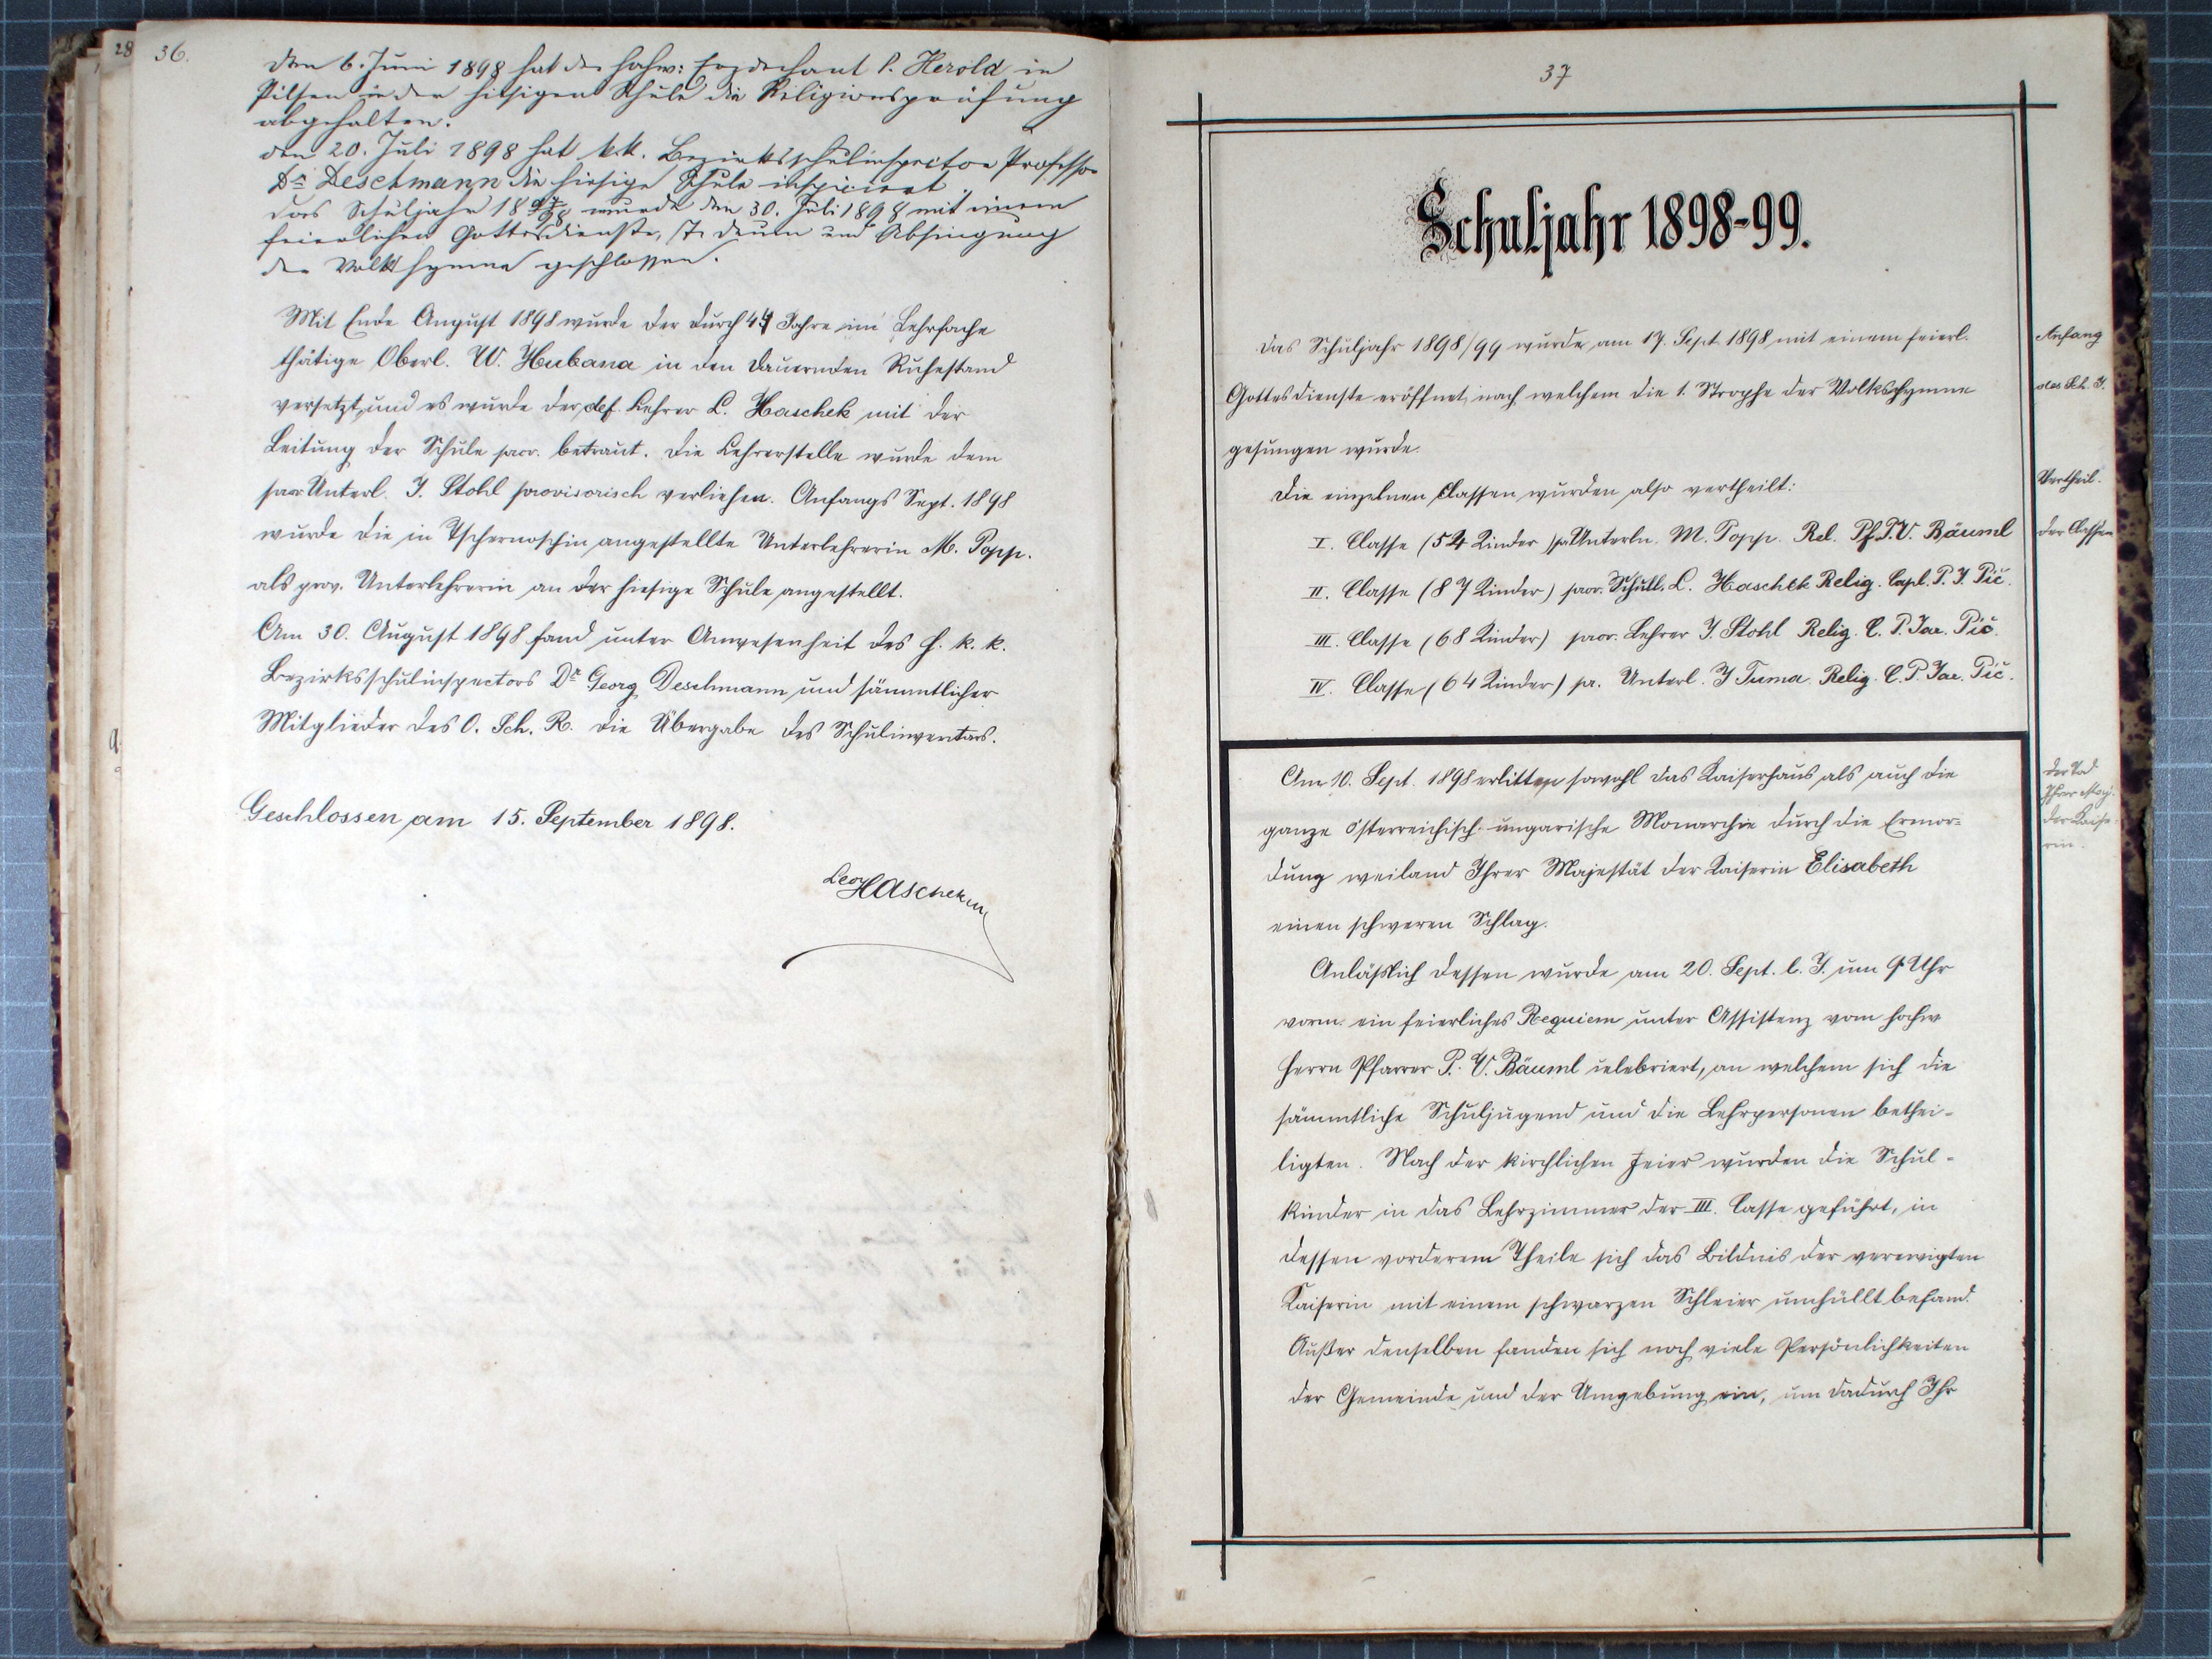 28
36.
Den 6. Juni 1898 hat der hochw: Erzdechant P. Herold in
Pilsen in der hiesigen Schule die Religionsprüfung
abgehalten.
Den 20. Juli 1898 hat k.k. Bezirksschulinspector Professor
Dr Deschmann die hiesige Schule inspicirt.
Das Schuljahr 1897/98 wurde den 30. Juli 1898 mit einem
feierlichen Gottesdienste, Te deum und Absingung
der Volkshymne geschlossen.
Mit Ende August 1898 wurde der durch 44 Jahre im Lehrfache
thätige Oberl. W. Hubana in den dauernden Ruhestand
versetzt, und es wurde der def. Lehrer L. Haschek mit der
Leitung der Schule prov. betraut. Die Lehrerstelle wurde dem
prov Unterl. J. Stohl provisorisch verliehen. Anfangs Sept. 1898
wurde die in Tschernoschin angestellte Unterlehrerin M. Popp.
als prov. Unterlehrerin an der hiesige Schule angestellt.
Am 30. August 1898 fand unter Anwesenheit des H. k. k.
Bezirksschulinspectors Dr Georg Deschmann und sämmtlicher
Mitglieder des O. Sch. R. die Übergabe des Schulinventars.
Geschlossen am 15. September 1898.
Leo Haschek
37
Schuljahr 1898-99.
Das Schuljahr 1898/99 wurde am 17. Sept 1898 mit einem feierl.
Anfang
Gottesdienste eröffnet, nach welchem die 1. Strophe der Volkshymne
des Sch. J.
gesungen wurde.
Die einzelnen Classen wurden also vertheilt:
Vertheil.
I. Classe (54 Kinder) pr. Unterln. M. Popp. Rel. Pf. P. V. Bäuml
der Classen
II. Classe (87 Kinder) prov. Schull. L. Haschek Relig. Capl. P. J. Pič.
III. Classe (68 Kinder) prov. Lehrer J. Stohl Relig. C. P. Jar. Pič.
IV. Classe (64 Kinder) pr. Unterl. J Tuma. Relig. C. P. Jar. Pič.
Am 10. Sept. 1898 erlitten sowohl das Kaiserhaus als auch die
der Tod
Ihrer Maj.
ganze österreichisch-ungarische Monarchie durch die Ermor=
der Kaise-
rin.
dung weiland Ihrer Majestät der Kaiserin Elisabeth
einen schweren Schlag.
Anläßlich dessen wurde am 20. Sept. l. J. um 9 Uhr
vorm. ein feierliches Requiem unter Assistenz vom hochw
Herrn Pfarrer P. V. Bäuml celebriert, an welchem sich die
sämmtliche Schuljugend und die Lehrpersonen bethei-
ligten. Nach der kirchlichen Feier wurden die Schul-
kinder in das Lehrzimmer der III. Classe geführt, in
dessen vorderem Theile sich das Bildnis der verewigten
Kaiserin mit einem schwarzen Schleier umhüllt befand.
Außer denselben fanden sich noch viele Persönlichkeiten
der Gemeinde und der Umgebung ein, um dadurch Ihr